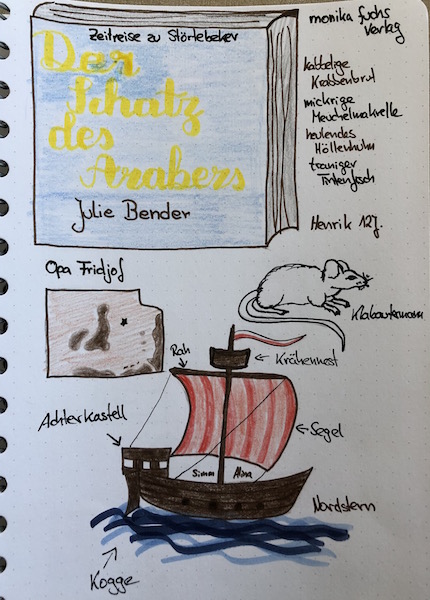 monika fuchs
Verlag
Zeitreise zu Störtebeker
Der
Schatz
des
Arabers
Julie Bender
kabbelige
Krabbenbrut
mickrige
Meuchelmakrelle
heulendes
Höllenhuhn
traniger
Tintenfisch
Henrik 12J.
Opa Fridjof
Klabautermann
Rah
Krähennest
Achterkastell
Segel
Simm Alina
Nordstern
Kogge